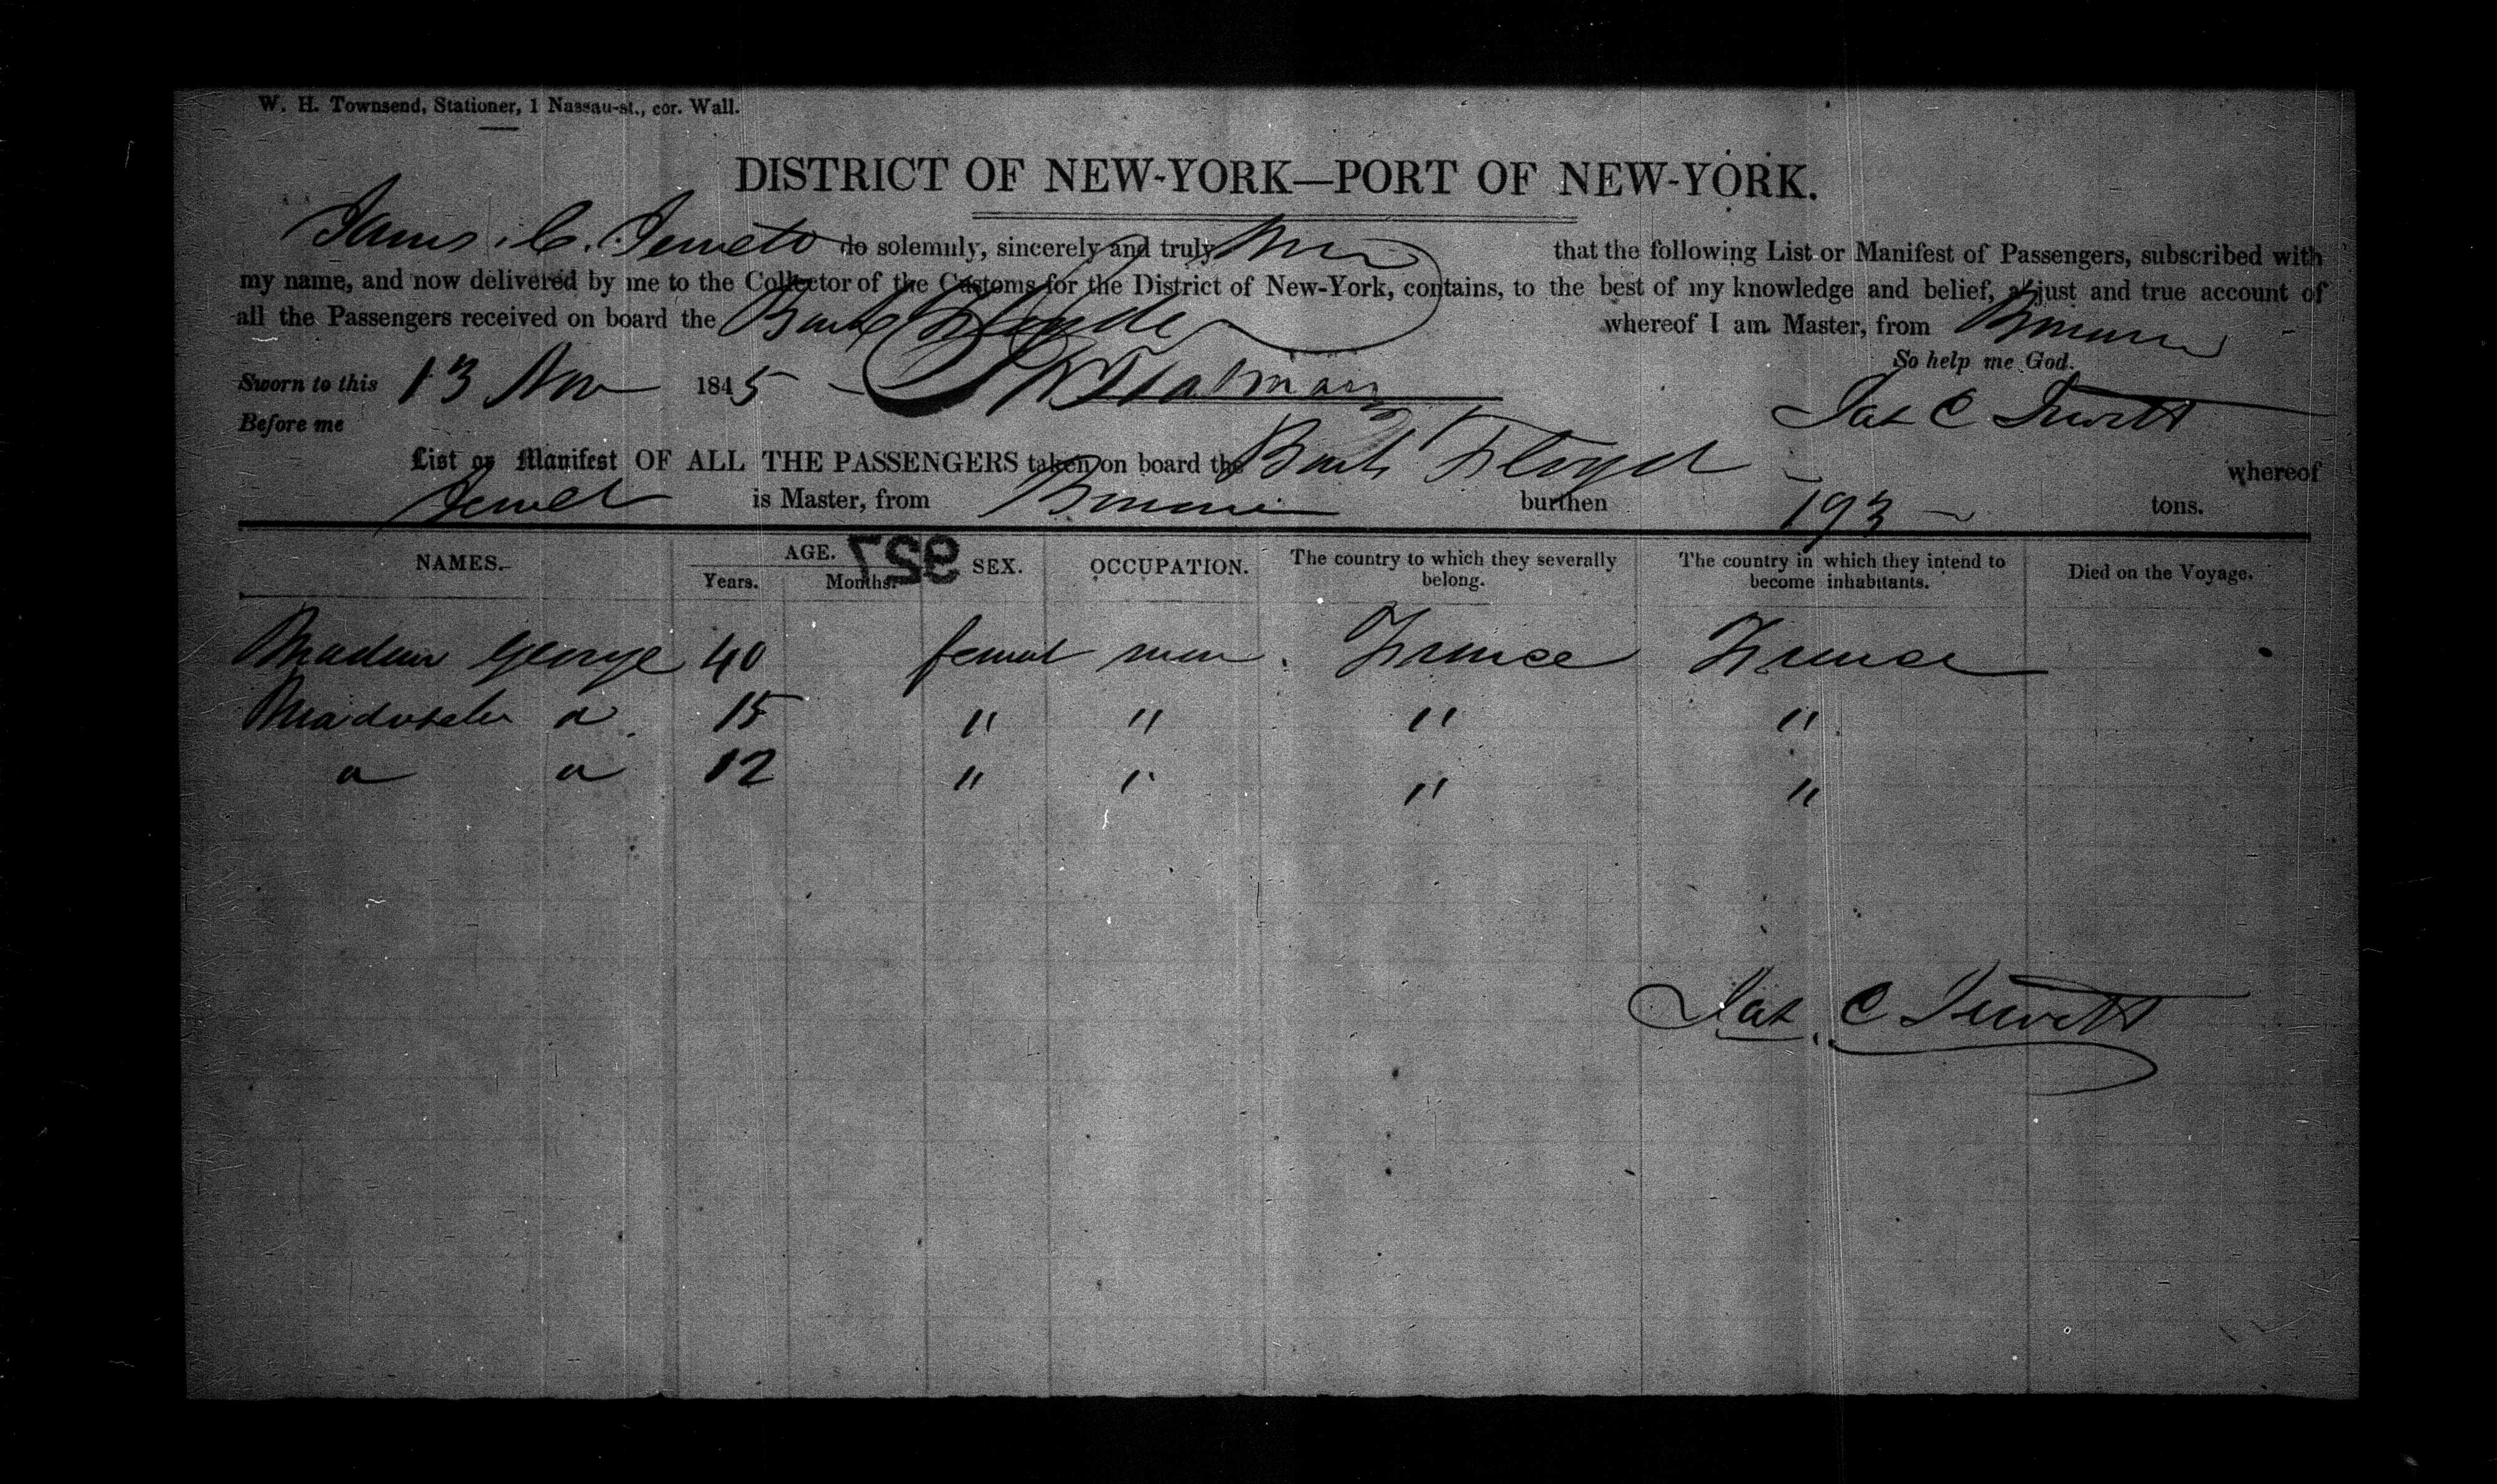 W. H. Townsend, Stationer, 1 Nassau-st., cor. Wall.
DISTRICT OF NEW-YORK—PORT OF NEW-YORK.
James C. Jewett do solemnly, sincerely and truly that the following List or Manifest of Passengers, subscribed with
my name, and now delivered by me to the Collector of the Customs for the District of New-York, contains, to the best of my knowledge and belief, a just and true account of
all the Passengers received on board the Bark whereof I am Master, from
So help me God.
Sworn to this 13 Nov 1845
Before me
Jas C Jewett
List or Manifest OF ALL THE PASSENGERS taken on board the Bark Floyd whereof
Jewet is Master, from burthen 193 tons.
NAMES. AGE. 927 SEX. OCCUPATION. The country to which they severally belong. The country in which they intend to become inhabitants. Died on the Voyage.
Years. Months.
Madam George 40 femal France France
15 " " " "
" " 12 " " " "
Jas. C Jewett